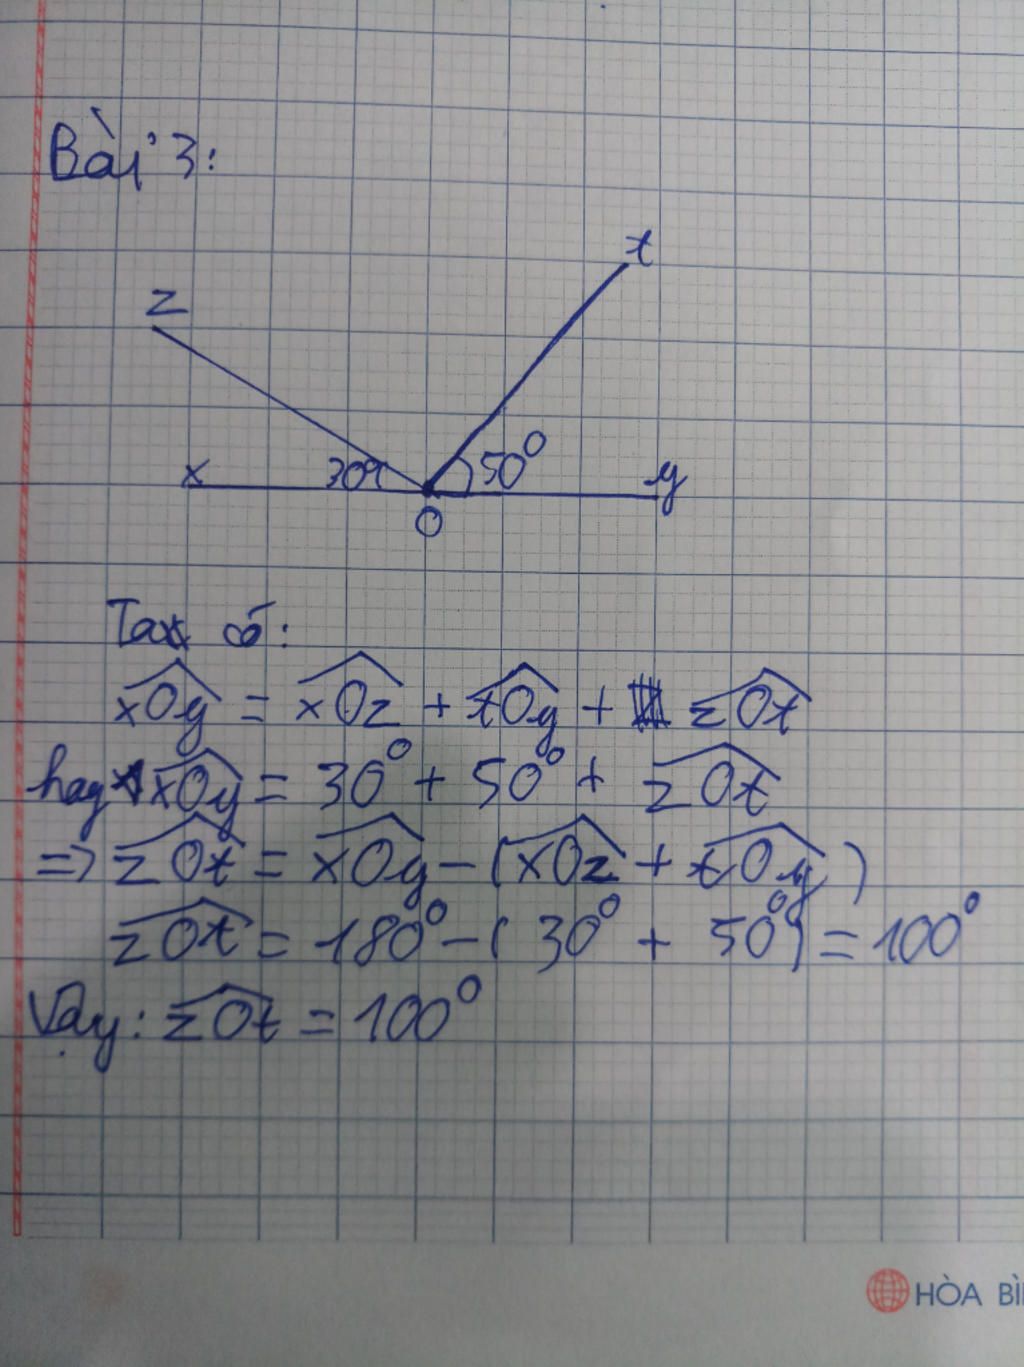 Bài 3:
t
z
x 30° 50° y
O
Ta có:
xOy = xOz + tOy + zOt
hay xOy = 30° + 50° + zOt
=> zOt = xOy - (xOz + tOy)
zOt = 180° - (30° + 50°) = 100°
Vậy: zOt = 100°
HÒA BÌ